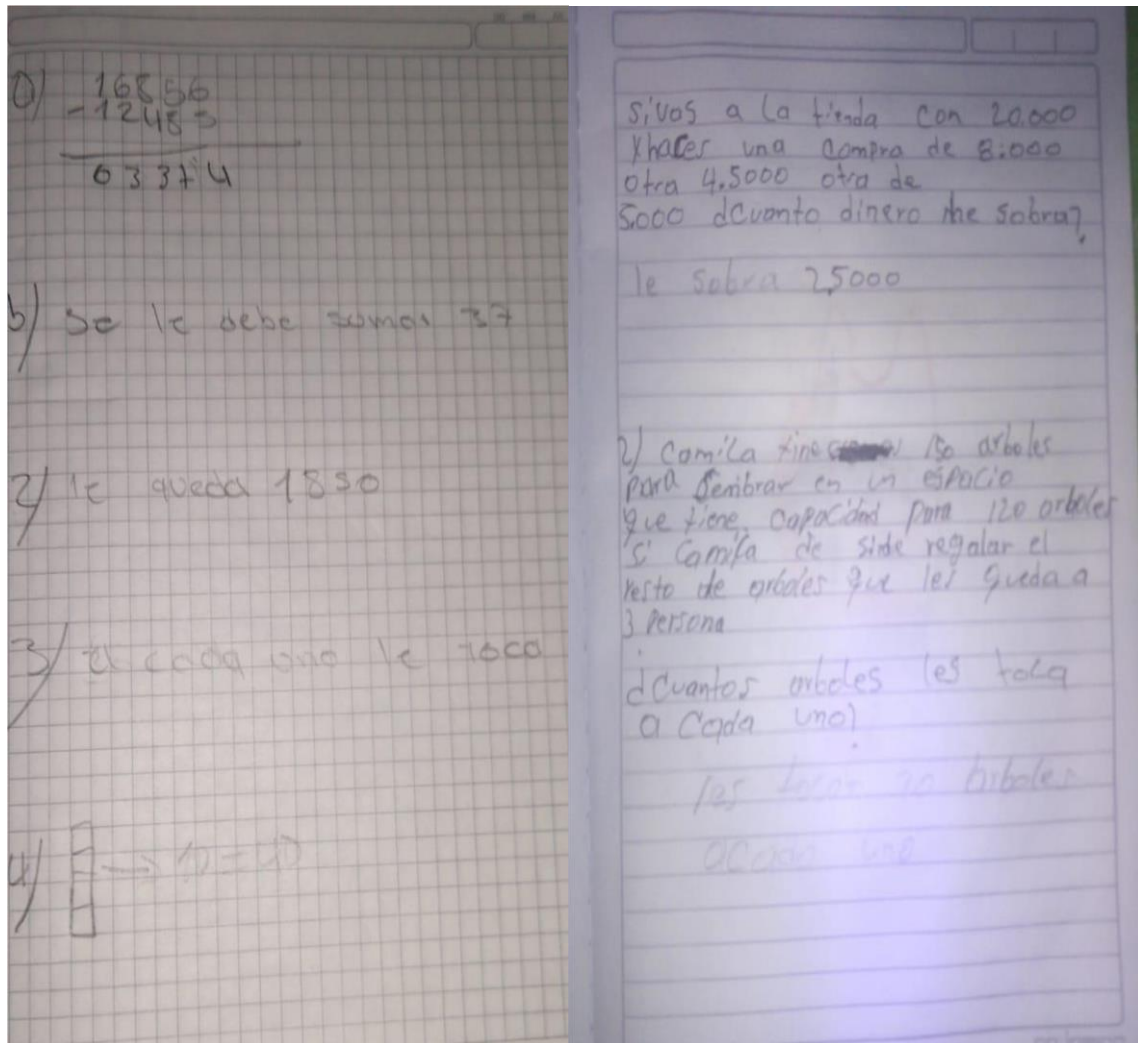 a) 16856
- 12483
0 3 3 7 4
b) se le debe sumar 37
2) le queda 1850
3) a cada uno le toco
4) → 10 = 40
sivas a la tienda con 20.000
Yhaces una compra de 8.000
otra 4.5000 otra de
5.000 dcuanto dinero me sobra?
le sobra 2,5000
2) Camila tine 150 arboles
para sembrar en un espacio
que tiene capacidad para 120 arboles
si Camila de side regalar el
resto de arboles que lei queda a
3 Persona
dCuantos arboles les toca
a Cada uno?
les tocan 10 arboles
acada uno